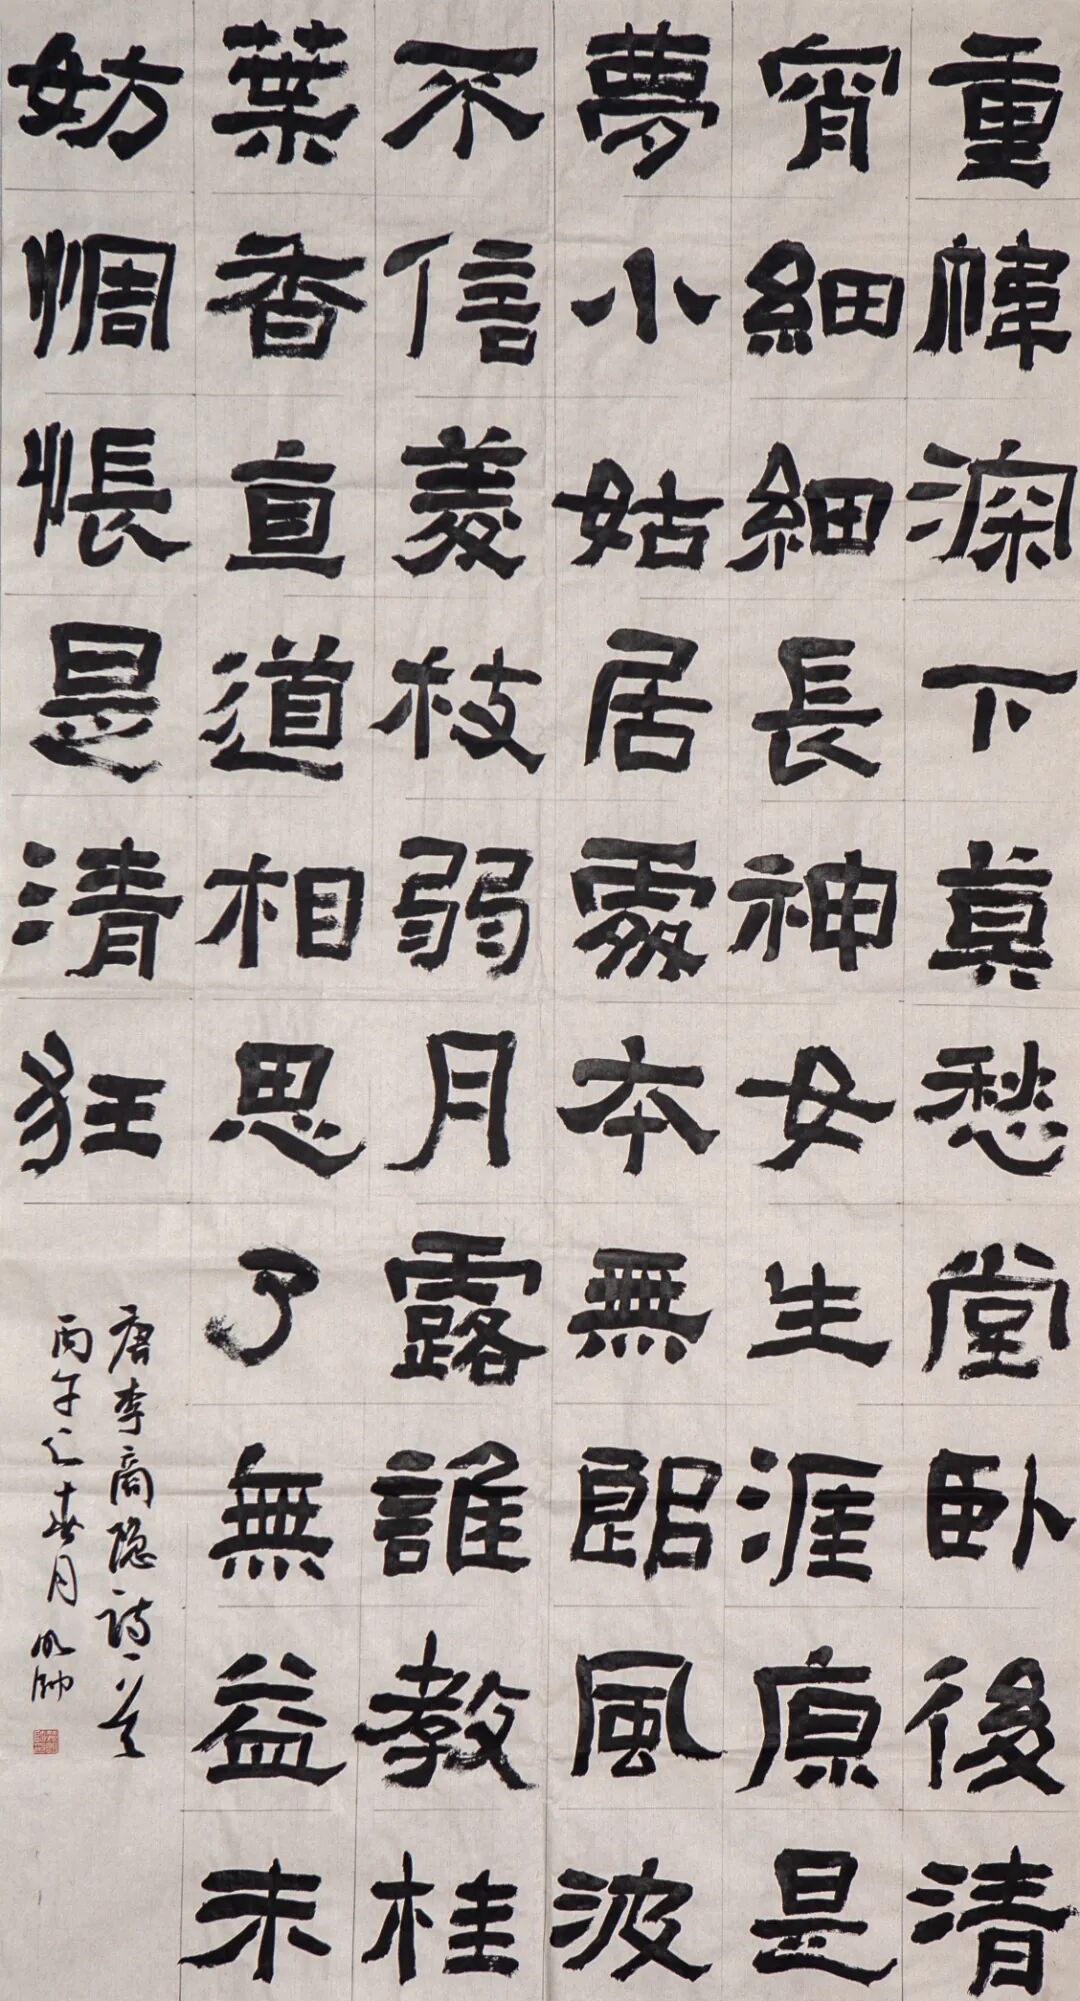 重幃深下真愁堂卧後清
宵細細長神女生涯原是
夢小姑居處本無郎風波
不信菱枝弱月露誰教桂
葉香直道相思了無益未
妨惆悵是清狂
唐李商隐诗一首
丙午之春月